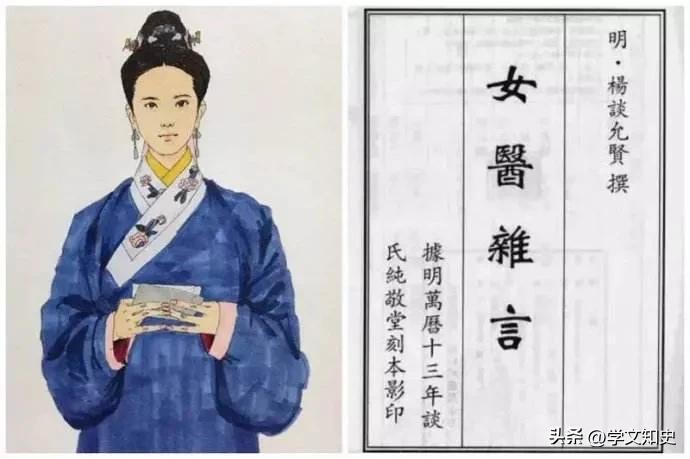 明·楊談允賢撰
女醫雜言
據明萬曆十三年談
氏純敬堂刻本影印
头条 @学文知史